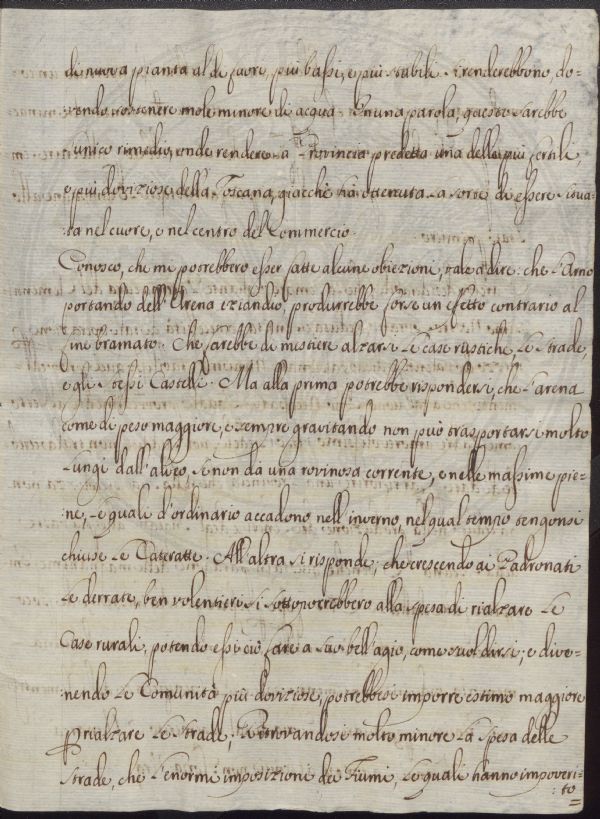 di nuova pianta al di fuore, più bassi, e più stabili si renderebbono, do-
vendo sostenere mole minore di acqua. In una parola, questo sarebbe
l'unico rimedio, onde rendere la Provincia predetta una delle più fertili,
e più doviziose della Toscana, giacchè hà ottenuta la sorte di essere situa-
ta nel cuore, e nel centro del Commercio.
Conosco, che mi potrebbero esser fatte alcune obiezioni, vale a dire: che l'Arno
portando dell'Arena eziandio, produrrebbe forse un effetto contrario al
fine bramato. Che sarebbe di mestiere alzarsi le case rustiche, le strade,
e gli stessi Castelli. Ma alla prima potrebbe rispondersi, che l'arena
come di peso maggiore, e sempre gravitando non può trasportarsi molto
lungi dall'alveo, se non da una rovinosa corrente, e nelle massime pie-
ne, le quali d'ordinario accadono nell'inverno, nel qual tempo tengonsi
chiuse le Cateratte. All'altra si risponde, che crescendo ai Padronati
le derrate, ben volentieri si sottoporrebbero alla spesa di rialzare le
Case rurali, potendo essi ciò fare a suo bell'agio, come suol dirsi; e dive-
nendo le Comunità più doviziose, potrebbesi imporre estimo maggiore
p rialzare le strade, ritrovandosi molto minore la spesa delle
strade, che l'enorme imposizione dei Fiumi, le quali hanno impoveri-
:to